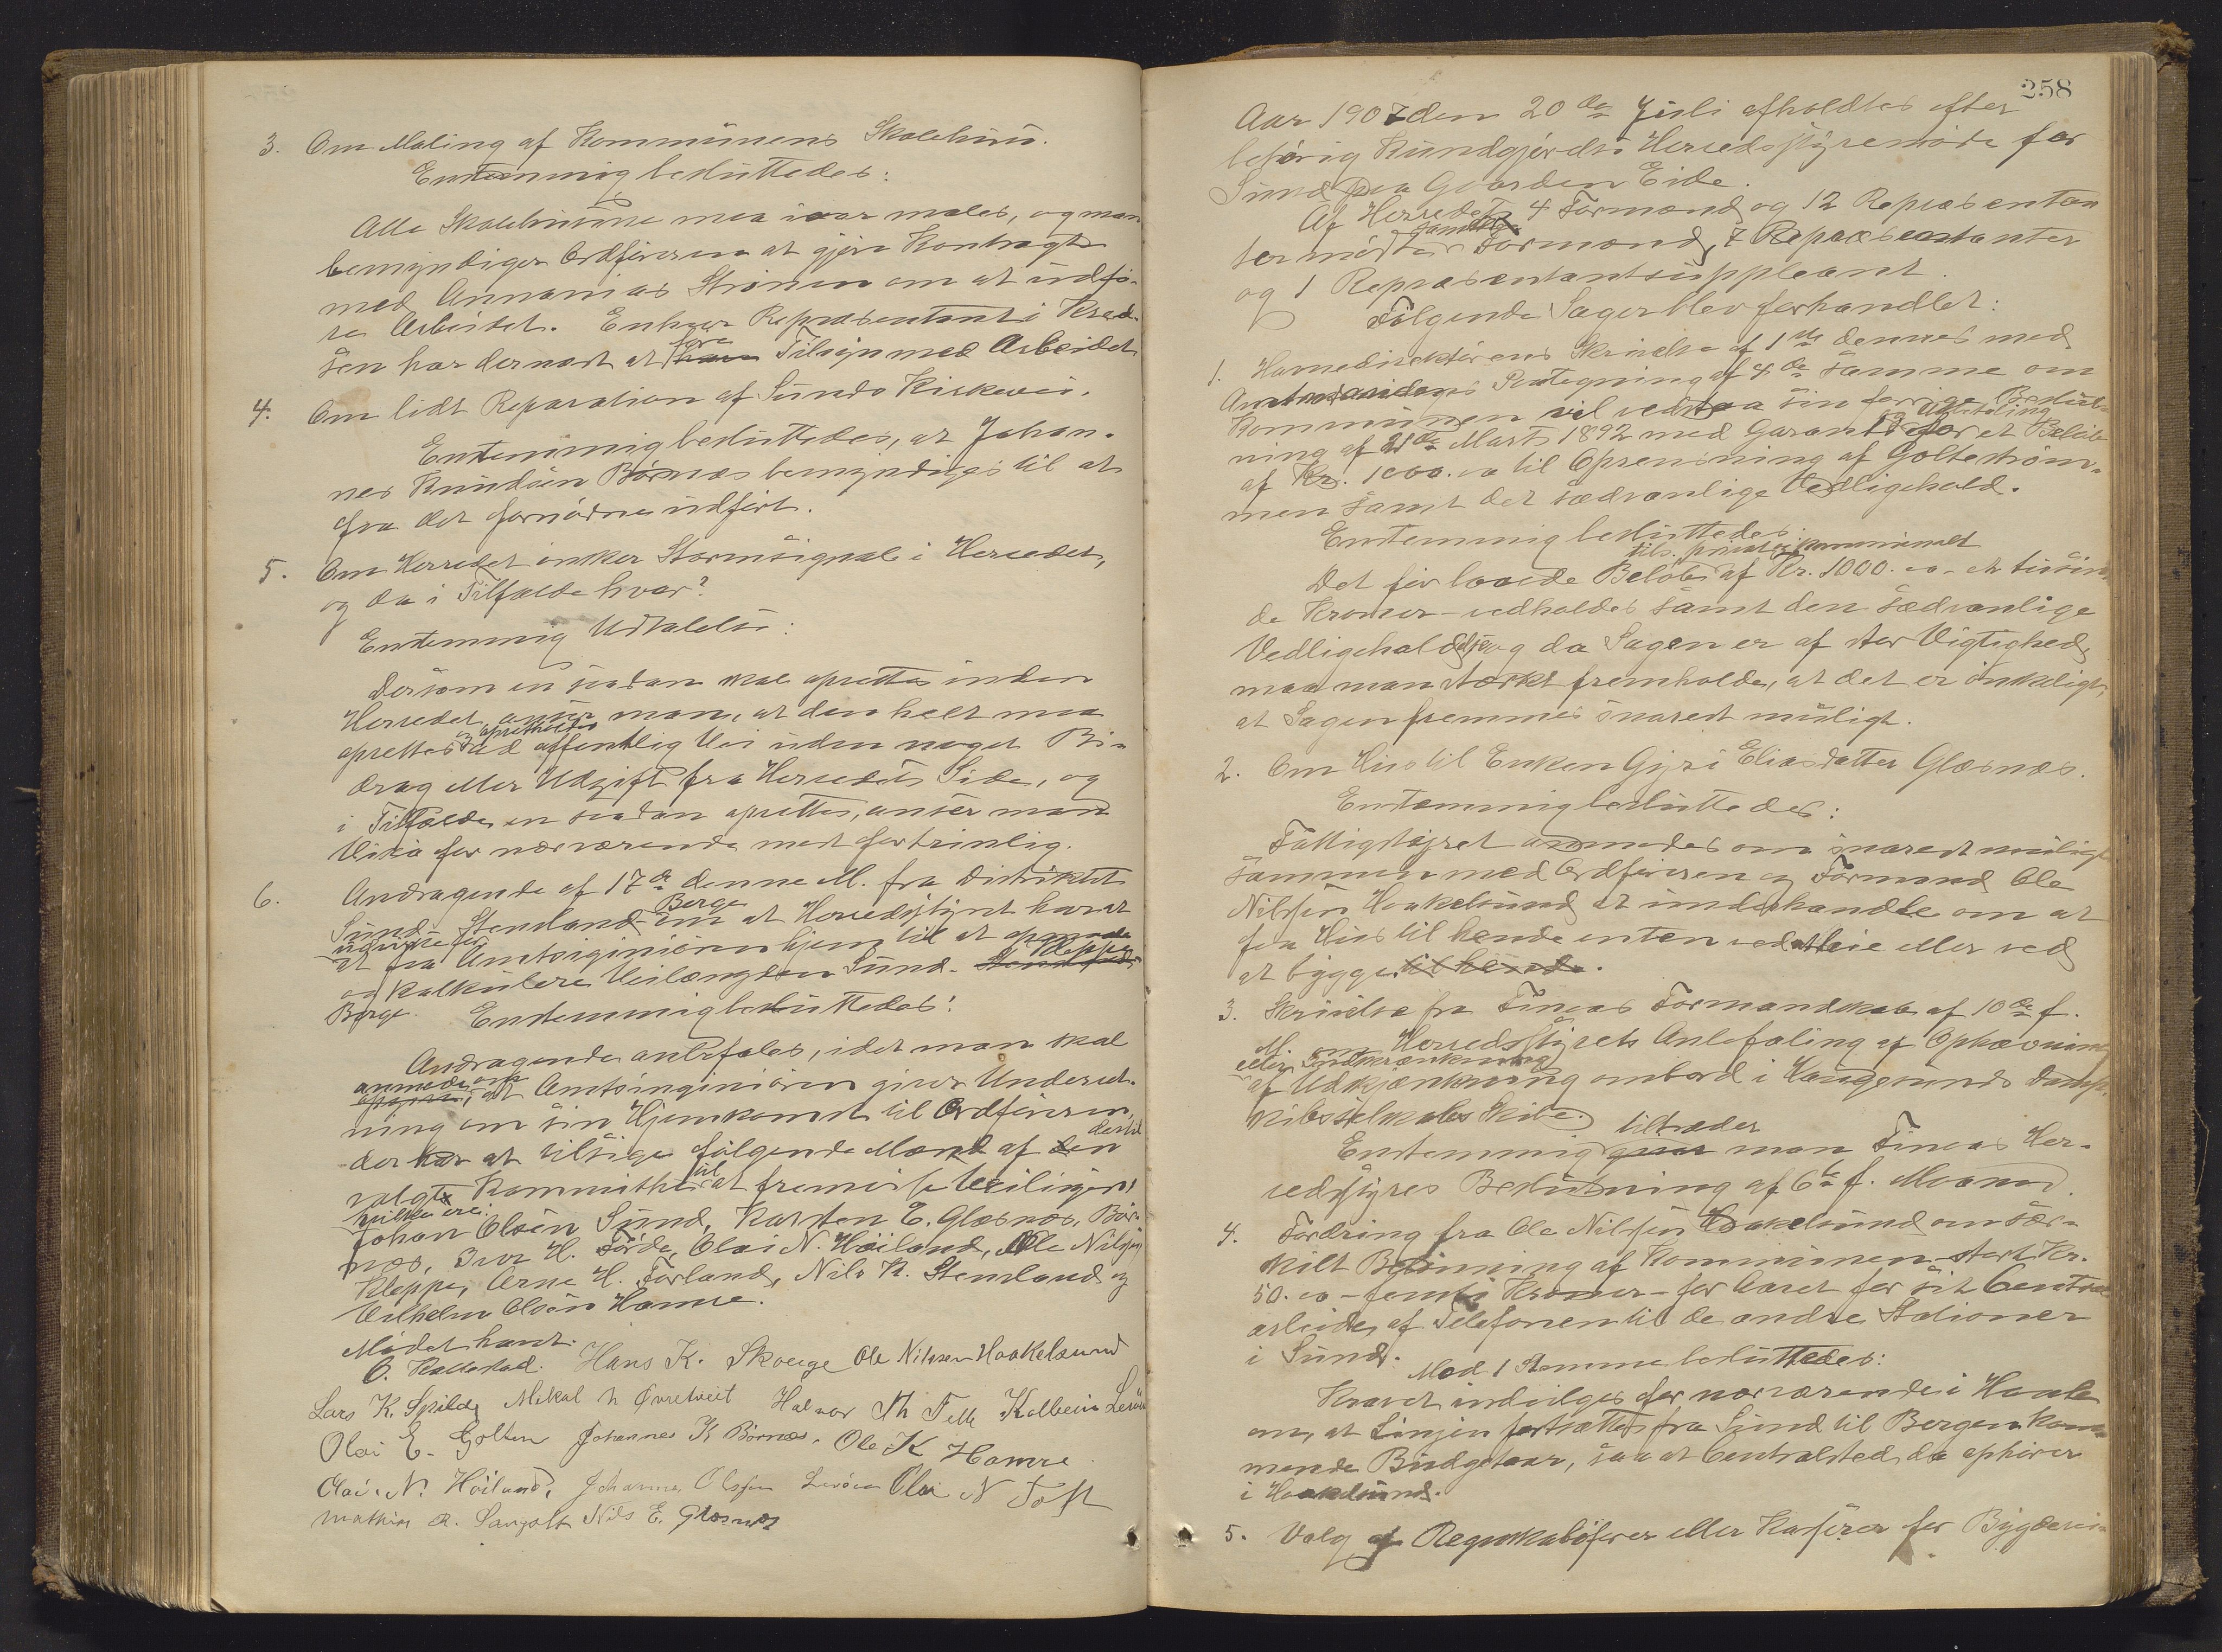 3. Om Maling af Kommunens Skolehus.
Enstemmig besluttedes:
Alle Skolehusene maa iaar males, og man
bemyndiger Ordføreren at gjøre Kontragt
med Annanias Strømen om at udfø-
re Arbeidet. Enhver Repræsentant i Kred-
sen har dernæst at føre Tilsyn med Arbeidet
4. Om lidt Reparation af Sunds Kirkevei.
Enstemmig besluttedes, at Johan-
nes Knudsen Børnæs bemyndiges til at
faa det fornødne udført.
5. Om Herredet ønsker Stormsignal i Herredet,
og da i Tilfælde hvor?
Enstemmig Udtalelse:
Dersom en saadan skal oprettes inden
Herredet, anser man, at den helt maa
og opretholdes
oprettes ved offentlig Vei uden noget Bi-
drag eller Udgift fra Herredets Side, og
i Tilfælde en saadan oprettes, anser man
for nærværende mest fortrinlig.
6. Andragende af 17de denne M. fra Distriktet
Berge
Sund Stemland om at Herredsstyret har at
udvirke for
at faa Amtsiginiøren hjem til at opmaale
Kleppe
og kalkulere Veilængden Sund-
Berge. Enstemmig besluttedes:
Andragende anbefales, idet man skal
anmode om
at Amtsinginiøren giver Underret-
ning om sin Hjemkomst til Ordføreren,
dertil
der har at tilsige følgende Mænd af den
til
valgte Kommithe at fremvise Veilinjen,
hvilke ere:
Johan Olsen Sund, Karsten E. Glæsnæs, Bør-
næs, Iver H. Førde, Olai N. Høiland, Ole Nilsen
Kleppe, Arne H. Forland, Nils K. Stemland og
Vilhelm Olsen Hamre.
Mødet hævt.
O. Kallestad. Hans K. Skouge Ole Nilssen Haakelsund
Lars K. Spilde Mikal h Øvretveit Halvor Th Telle Kolbein Lerøen
Olai E. Golten Johannes K Børnæs. Ole K Hamre.
Olai N. Höiland, Johannes Olssen Lerøen Olai N Toft
Mathias A. Sangolt Nils E. Glæsnæs
258
Aar 1907 den 20de Juli afholdtes efter
behørig Kundgjørelse Herredsstyremøde for
Sund paa Gaarden Eide.
Af Herredets 4 Formænd og 12 Repræsentan
samtlige
ter mødte Formænd, 7 Repræsentanter
og 1 Repræsentantsuppleant.
Følgende Sager blev forhandlet:
1. Havnedirektørens Skrivelse af 1ste dennes med
Amtmandens Paategning af 4de samme om
Kommunen vil vedstaa sin forrige Beslut-
og Udbetaling
ning af 21de Marts 1892 med Garanti for et Beløb
af Kr. 1000.00 til Oprensning af Goltestrøm-
men samt det sædvanlige Vedligehold.
Enstemmig besluttedes:
dels privat og kommunalt
Det før lovede Beløb af Kr. 1000.00 - et tusin-
de Kroner - vedholdes samt den sædvanlige
Vedligeholdelse og da Sagen er af stor Vigtighed,
maa man stærkt fremholde, at det er ønskeligt,
at Sagen fremmes snarest muligt.
2. Om Hus til Enken Gyri Eliasdatter Glæsnæs.
Enstemmig besluttedes:
Fattigstyret anmodes om snarest muligt
sammen med Ordføreren og Formand Ole
Nilssen Haakelsund at underhandle om at
faa Hus til hende enten ved at leie eller ved
at bygge til hende.
3. Skrivelse fra Finaas Formandskab af 10de f.
M. om Herredsstyrets Anbefaling af Ophævning
eller Indskrænkning
af Udskjænkning ombord i Haugesunds Damp-
skibsselskabs Skibe.
tiltræder
Enstemmig man Finaas Her-
redsstyres Beslutning af 6te f. Maaned.
4. Fordring fra Ole Nilssen Haakelsund om sær-
skilt Betaling af Kommunen stort Kr.
50.00 - femti Kroner - for Aaret for sit Central
arbeide af Telefonen til de andre Stationer
i Sund.
Mod 1 Stemme besluttedes:
Kravet indvilges for nærværende i Haab
om, at Linjen fortsættes fra Sund til Bergen kom-
mende Budgetaar, saa at Centralsted da ophører
i Haakelsund.
5. Valg af Regnskabsfører eller Kasserer for Bygdevei-